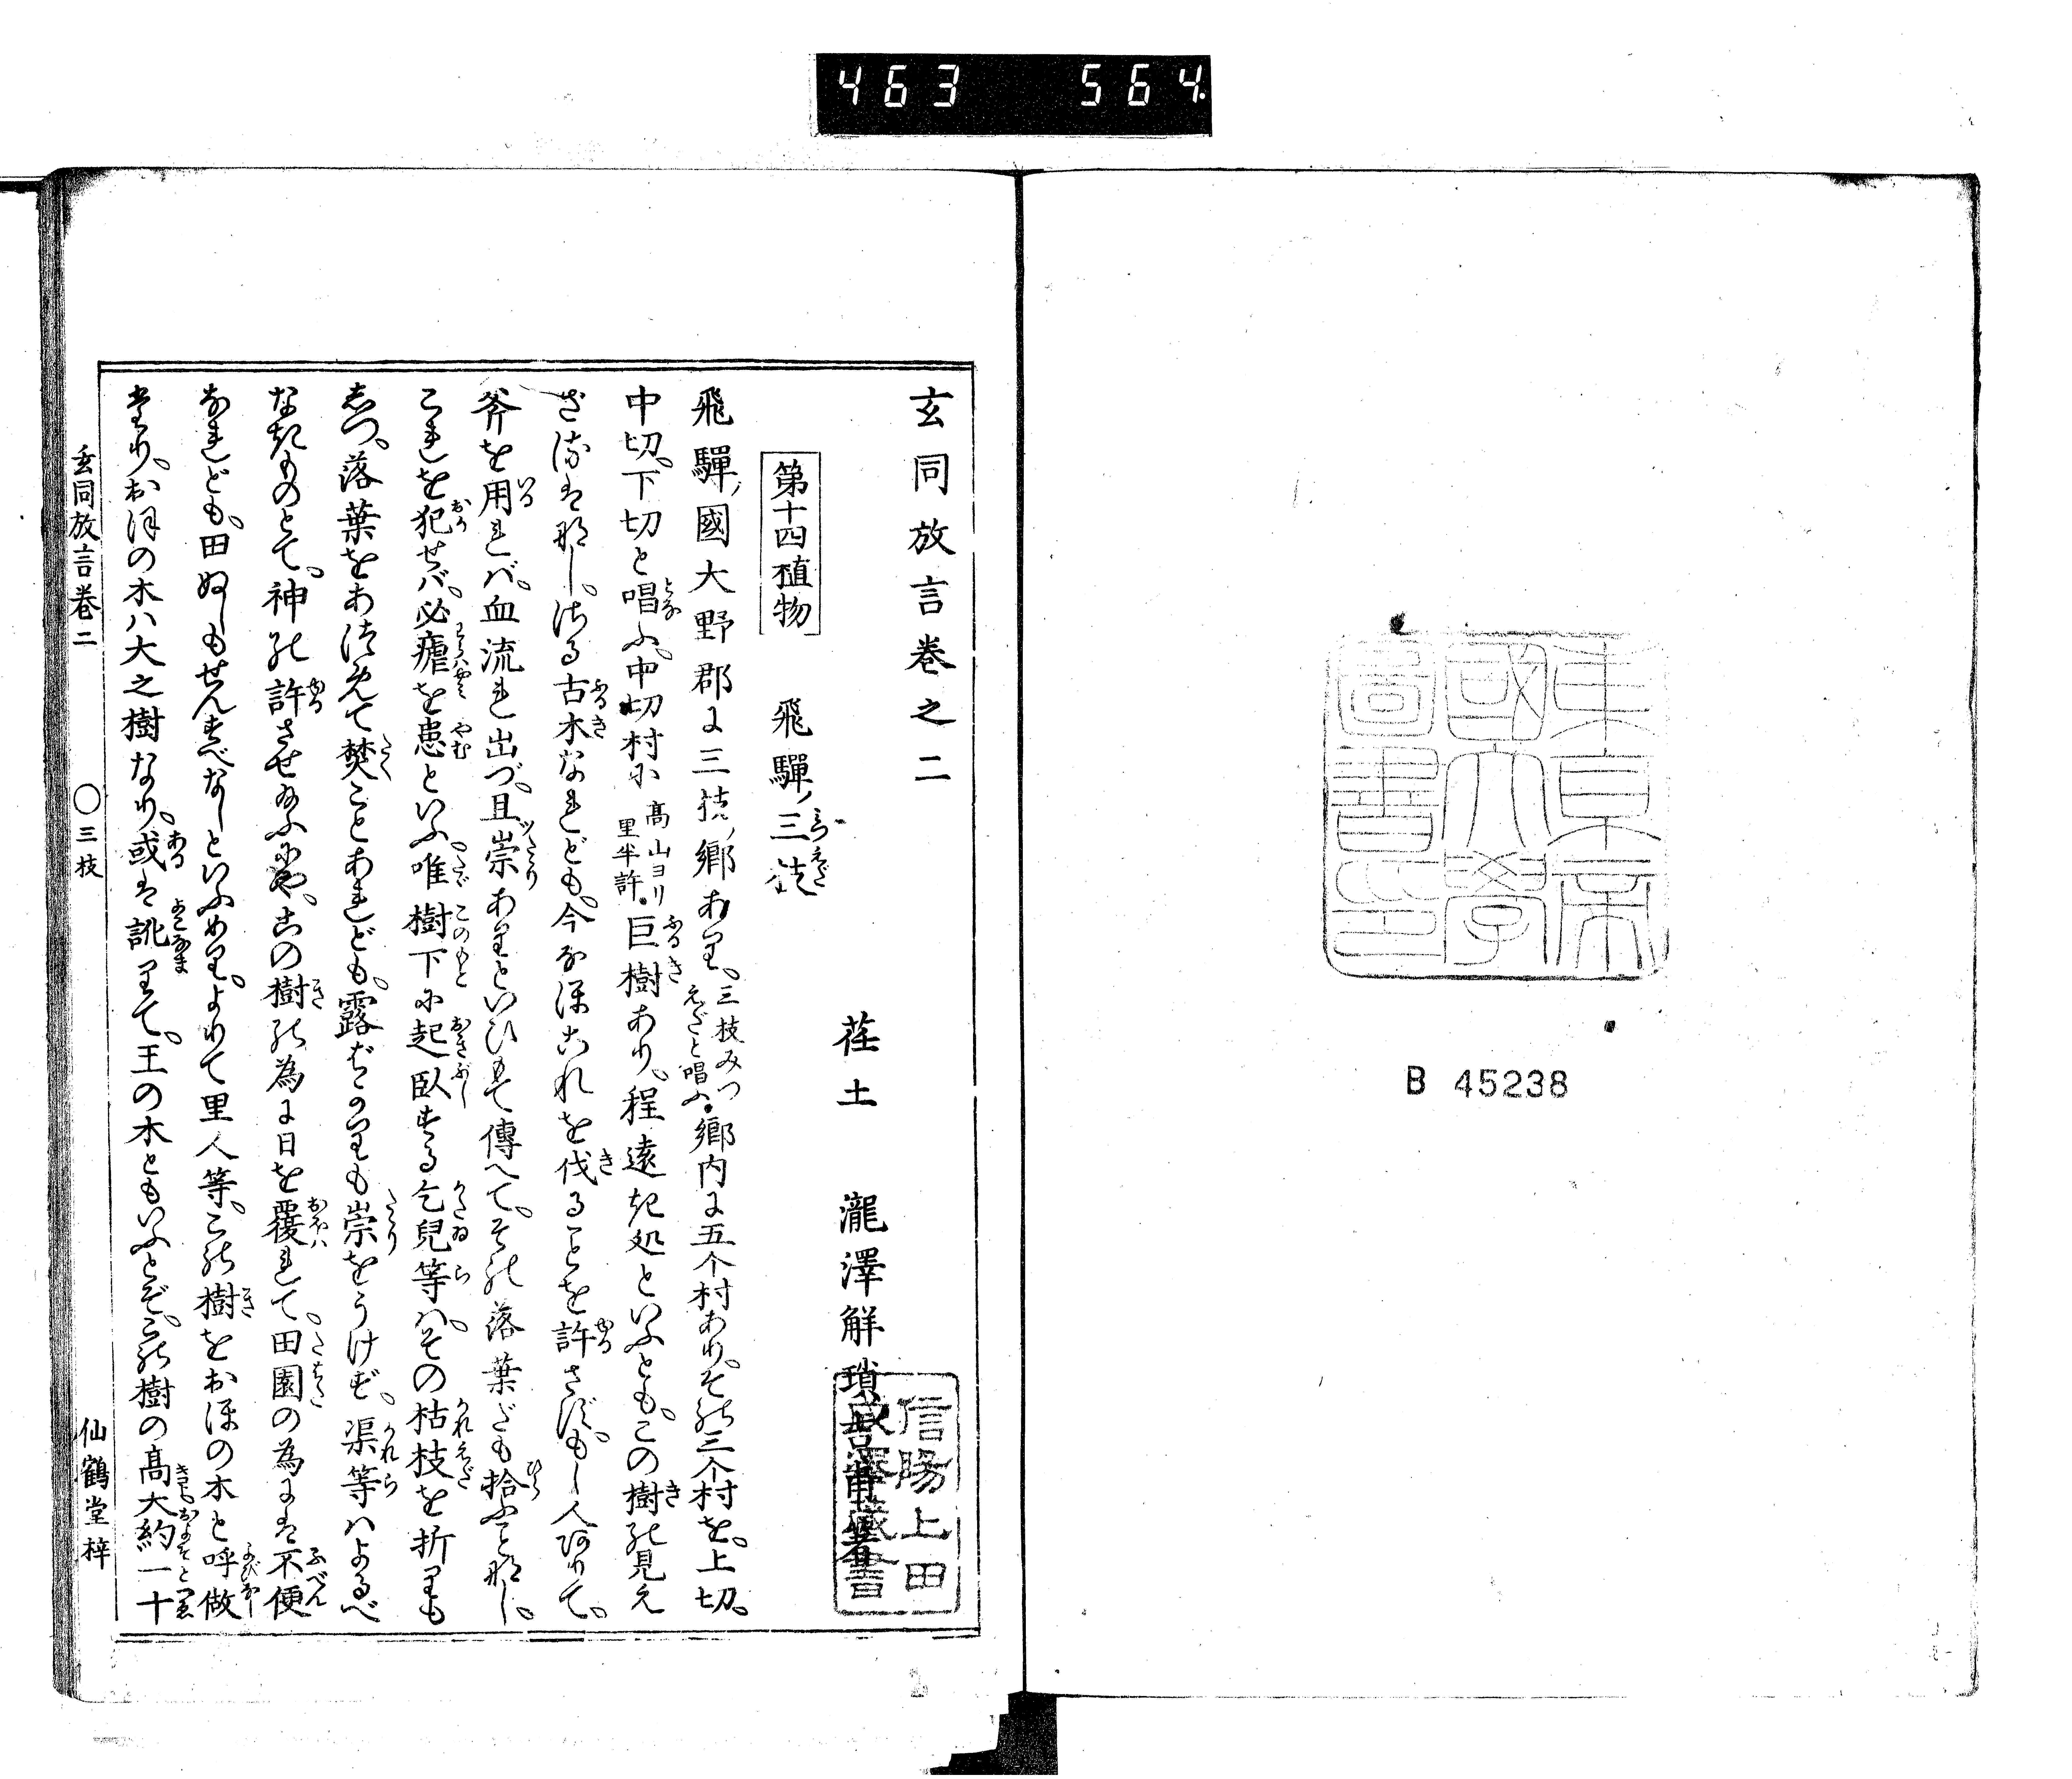 463 564
東京帝
國大學
圖書印
B 45238
玄同放言卷之二
荏土 瀧澤解瑣吉甫著
信陽上田
第十四植物 飛驒ノ三枝
飛驒ノ國大野郡に三枝ノ郷あり、三枝みつえだと唱ふ。郷内に五个村あり、その三个村を、上切、
中切、下切と唱ふ、中切村に高山ヨリ里半許。巨樹あり、程遠き処といふとも、この樹の見え
ざるは那し、さる古木なれども、今なほこれを伐ることを許さず、もし人ありて、
斧を用れバ、血流れ出づ、且崇ありといひもて傳へて、その落葉だも拾ふこと那し、
これを犯せバ、必瘧を患といふ、唯樹下に起臥する乞兒等ハ、その枯枝を折りも
しつ、落葉をあつめて焚ことあれども、露ばかりも崇をうけず、渠等ハよるべ
なきものとて、神の許させ給ふにや、この樹の為に日を覆れて、田園の為には不便
なれども、田ぬしもせんすべなしといふめり、よりて里人等、この樹をおほの木と呼做
たり、おほの木ハ大之樹なり、或は訛りて、王の木ともいふとぞ、この樹の高大約一十
玄同放言卷二 〇三枝 仙鶴堂梓